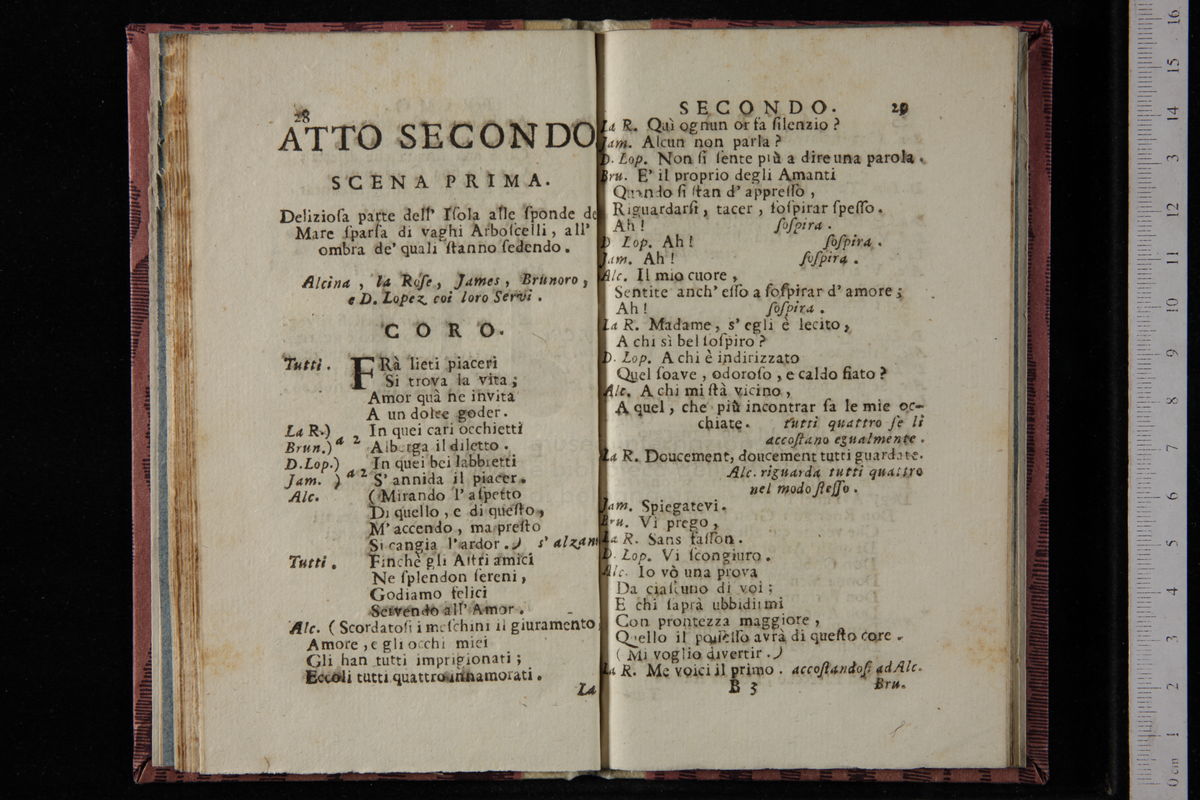 28
ATTO SECONDO
SCENA PRIMA.
Delizioſa parte dell' Iſola alle ſponde de
Mare ſparſa di vaghi Arboſcelli, all'
ombra de' quali ſtanno ſedendo.
Alcina, la Roſe, James, Brunoro,
e D. Lopez coi loro Servi.
CORO.
Tutti. FRà lieti piaceri
Si trova la vita;
Amor quà ne invita
A un dolce goder.
La R.) In quei cari occhietti
Brun.) a 2 Alberga il diletto.
D. Lop.) In quei bei labbietti
Jam. ) a 2 S' annida il piacer.
Alc. (Mirando l' aſpetto
Di quello, e di queſto,
M' accendo, ma preſto
Si cangia l' ardor.) s' alzan
Tutti. Finchè gli Aſtri amici
Ne ſplendon ſereni,
Godiamo felici
Servendo all' Amor.
Alc. (Scordatoſi i meſchini il giuramento
Amore, e gli occhi miei
Gli han tutti imprigionati;
Eccoli tutti quattro innamorati.
La
SECONDO. 29
La R. Quì ognun or fa ſilenzio?
Jam. Alcun non parla?
D. Lop. Non ſi ſente più a dire una parola.
Bru. E' il proprio degli Amanti
Quando ſi ſtan d' appreſſo,
Riguardarſi, tacer, ſoſpirar ſpeſſo.
Ah! ſoſpira.
D Lop. Ah! ſoſpira.
Jam. Ah! ſoſpira.
Alc. Il mio cuore,
Sentite anch' eſſo a ſoſpirar d' amore;
Ah! ſoſpira.
La R. Madame, s' egli è lecito,
A chi sì bel ſoſpiro?
D. Lop. A chi è indirizzato
Quel ſoave, odoroſo, e caldo fiato?
Alc. A chi mi ſtà vicino,
A quel, che più incontrar fa le mie oc-
chiate. tutti quattro ſe li
accoſtano egualmente.
La R. Doucement, doucement tutti guardate.
Alc. riguarda tutti quattro
nel modo ſteſſo.
Jam. Spiegatevi.
Bru. Vi prego,
La R. Sans faſſon.
D. Lop. Vi ſcongiuro.
Alc. Io vò una prova
Da ciaſcuno di voi;
E chi ſaprà ubbidirmi
Con prontezza maggiore,
Quello il poſſeſſo avrà di queſto core.
(Mi voglio divertir.)
La R. Me voici il primo. accoſtandoſi ad Alc.
B 3 Bru.